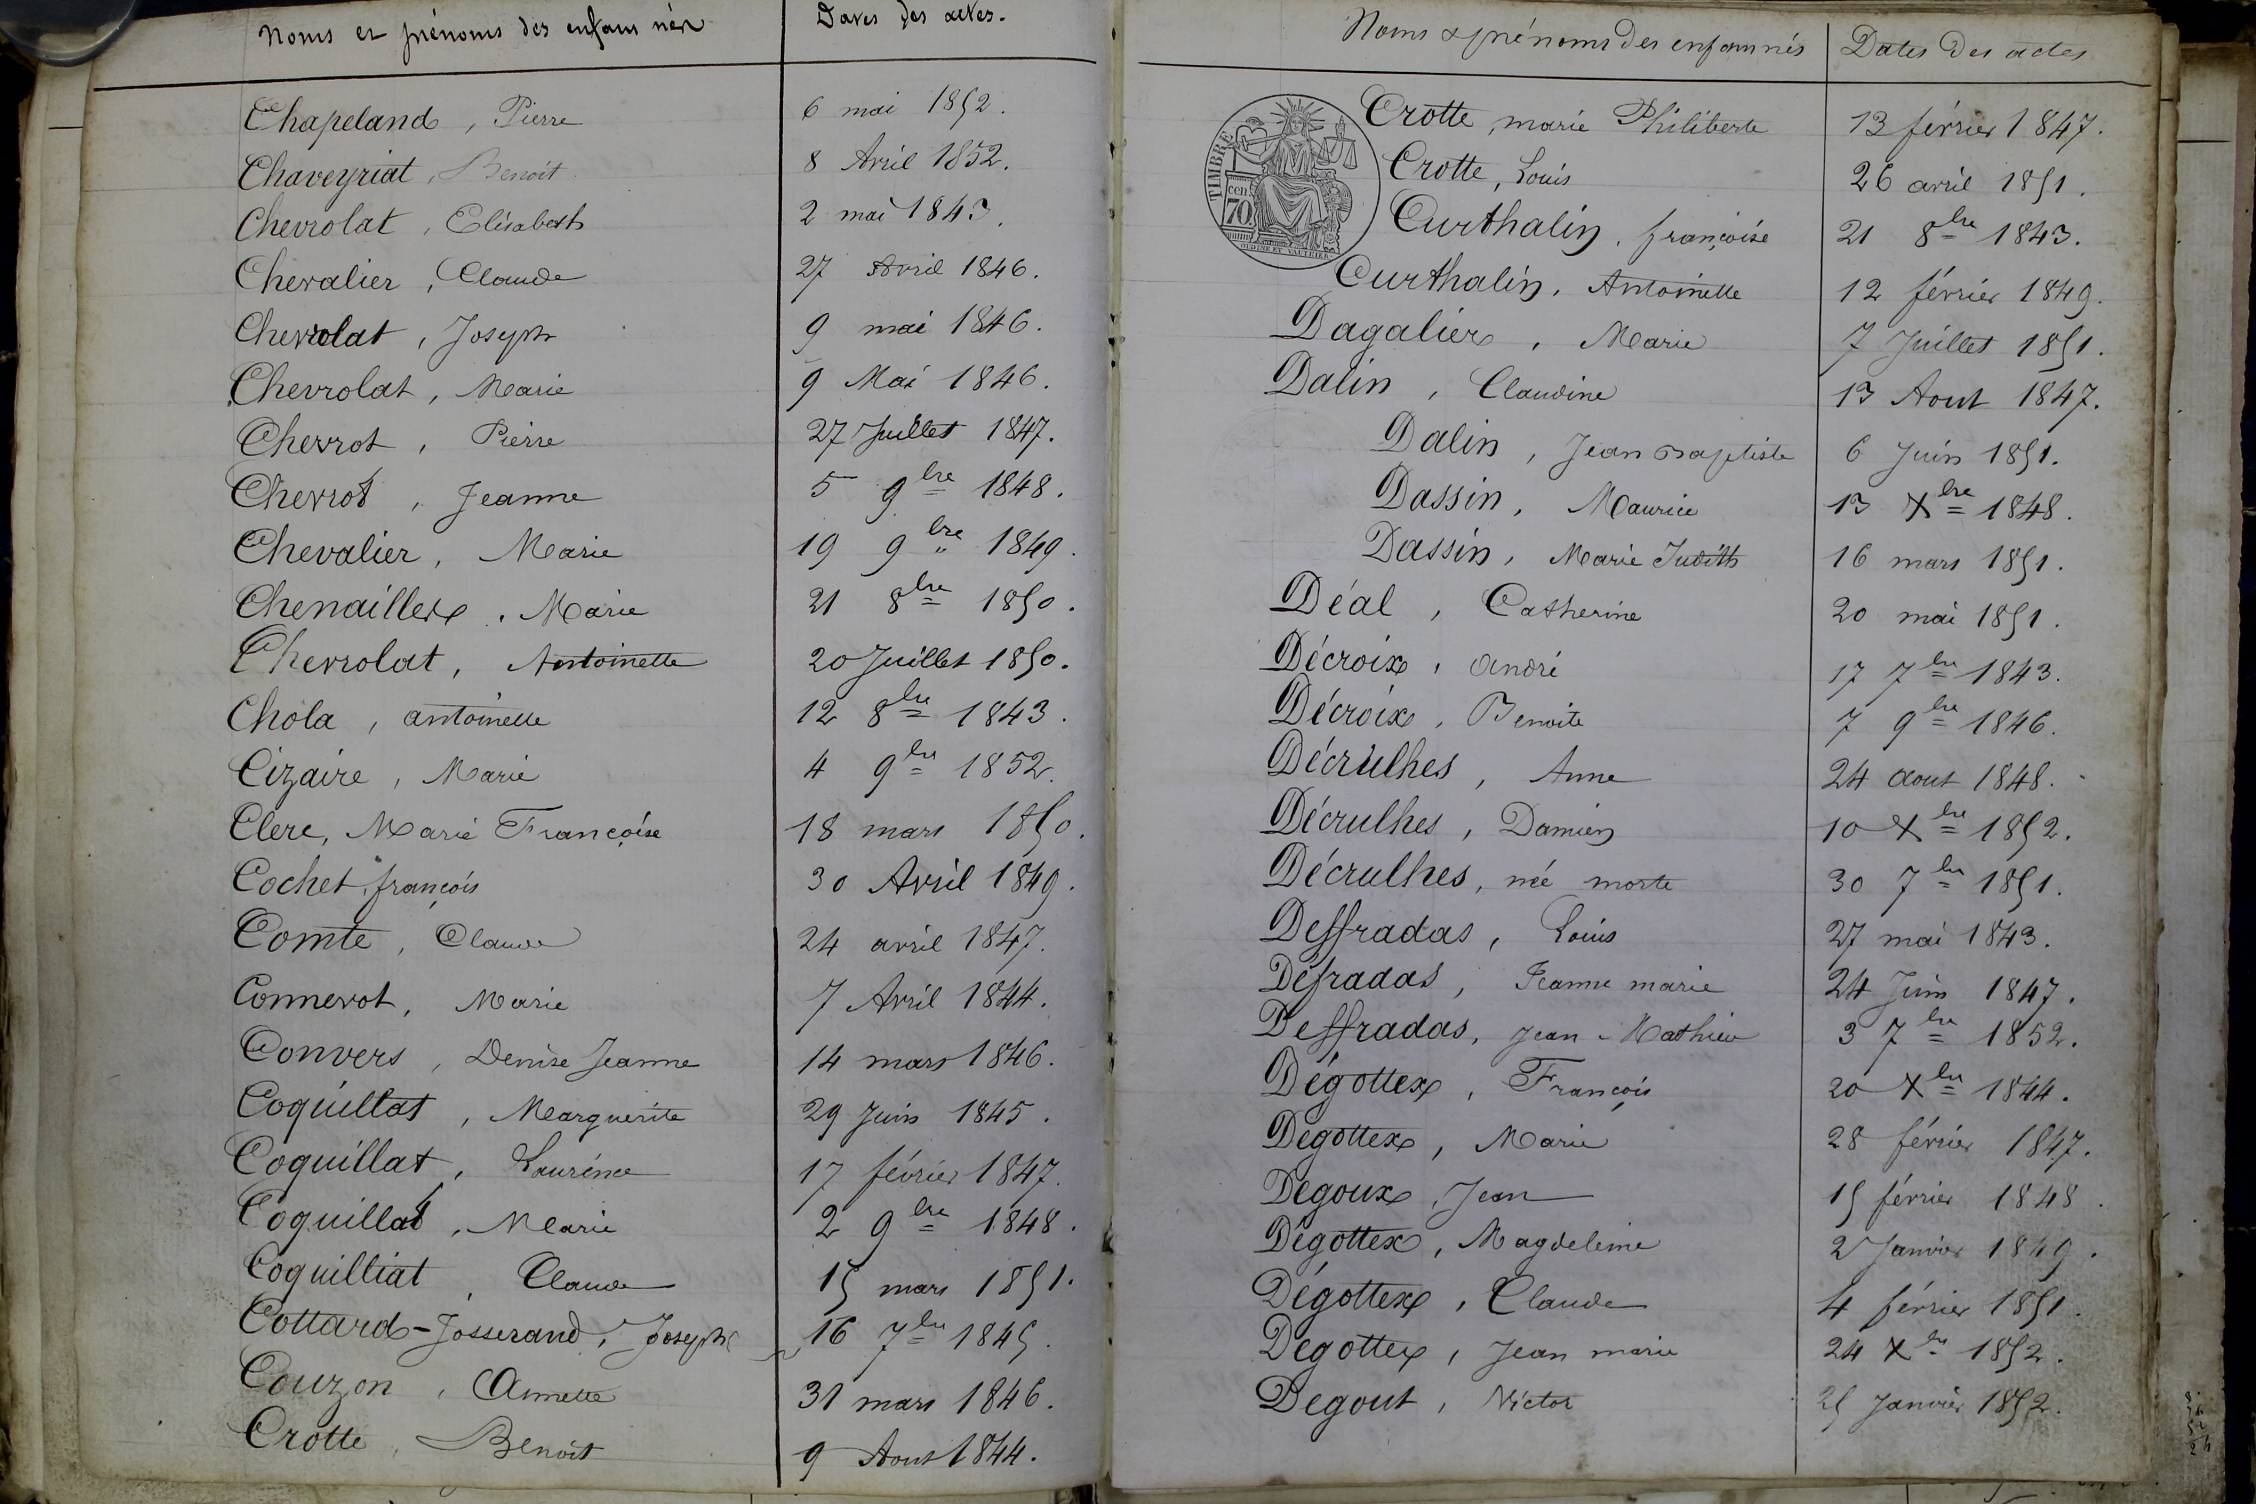 Noms et prénoms des enfans nés
Dates des actes.
Chapeland, Pierre 6 mai 1852.
Chaveyriat, Benoit 8 Avril 1852.
Chevrolat, Elisabeth 2 mai 1843.
Chevalier, Claude 27 Avril 1846.
Chevrolat, Joseph 9 mai 1846.
Chevrolat, Marie 9 Mai 1846.
Chevrot, Pierre 27 Juillet 1847.
Chevrot, Jeanne 5 9bre 1848.
Chevalier, Marie 19 9bre 1849.
Chenailler, Marie 21 8bre 1850.
Chevrolat, Antoinette 20 Juillet 1850.
Chola, antoinette 12 8bre 1843.
Cizaire, Marie 4 9bre 1852.
Clerc, Marie Françoise 18 mars 1850.
Cochet, françois 30 Avril 1849.
Comte, Claude 24 avril 1847.
Connevot, Marie 7 Avril 1844.
Convers, Denise Jeanne 14 mars 1846.
Coquillat, Marguerite 29 Juin 1845.
Coquillat, Laurence 17 février 1847.
Coquillat, Marie 2 9bre 1848.
Coquilliat, Claude 15 mars 1851.
Cottard-Josserand, Joseph 16 7bre 1845.
Couzon, Annette 31 mars 1846.
Crotte, Benoit 9 Aout 1844.
Noms & prénoms des enfans nés
Dates des actes
TIMBRE
cen
70
Crotte, marie Philiberte 13 février 1847.
Crotte, Louis 26 avril 1851.
Curthalin, françoise 21 8bre 1843.
Curthalin, Antoinette 12 février 1849.
Dagalier, Marie 7 Juillet 1851.
Dalin, Claudine 13 Aout 1847.
Dalin, Jean Baptiste 6 Juin 1851.
Dassin, Maurice 13 Xbre 1848.
Dassin, Marie Judith 16 mars 1851.
Déal, Catherine 20 mai 1851.
Décroix, André 17 7bre 1843.
Décroix, Benoite 7 9bre 1846.
Décrulhes, Anne 24 aout 1848.
Décrulhes, Damien 10 Xbre 1852.
Décrulhes, née morte 30 7bre 1851.
Deffradas, Louis 27 mai 1843.
Défradas, Jeanne marie 24 Juin 1847.
Deffradas, Jean-Mathieu 3 7bre 1852.
Dégottex, François 20 Xbre 1844.
Dégottex, Marie 28 février 1847.
Dégoux, Jean 15 février 1848.
Dégottex, Magdeleine 2 Janvier 1849.
Dégottex, Claude 4 février 1851.
Degottex, Jean marie 24 Xbre 1852.
Degout, Victor 25 Janvier 1852.